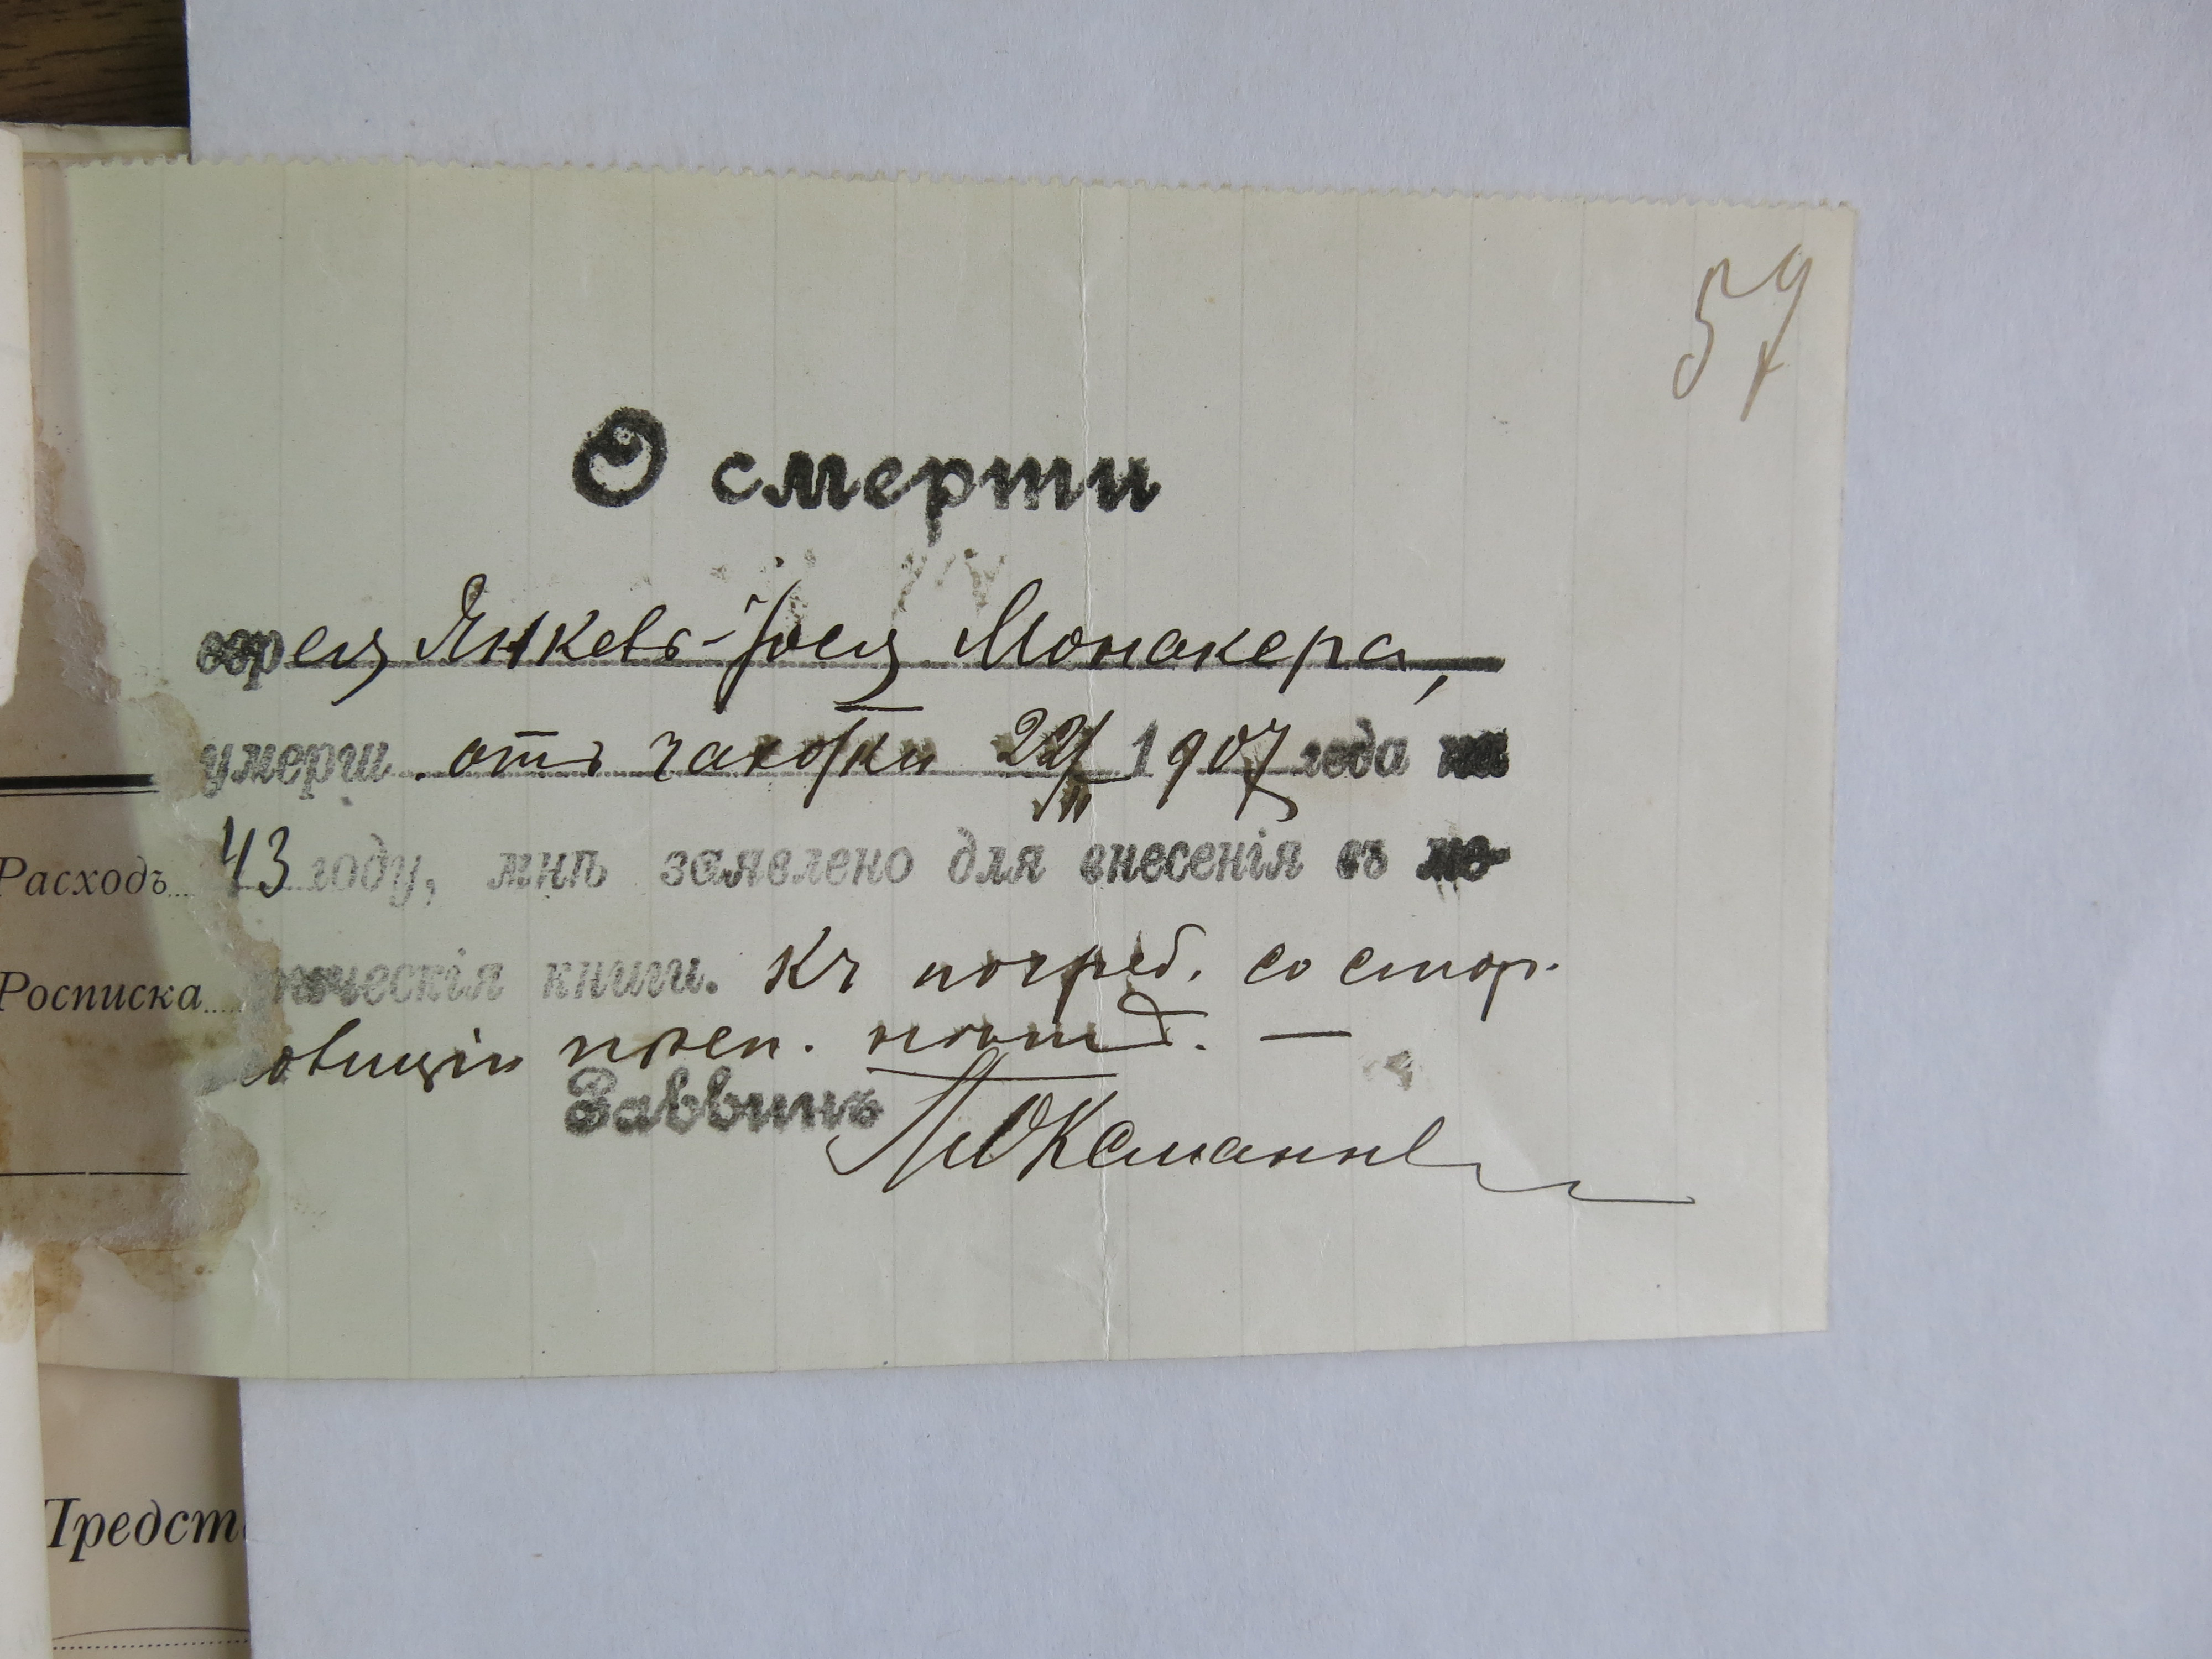 57
О смерти
еврея Янкевъ-Іоея Монакера,
умерш. отъ чахотки 22/II 1907 года на
43 году, мнѣ заявлено для внесенія въ ме-
трическія книги. Къ погреб. со стор.
преп. нѣтъ. —
Раввинъ
Расходъ
Росписка
Предст